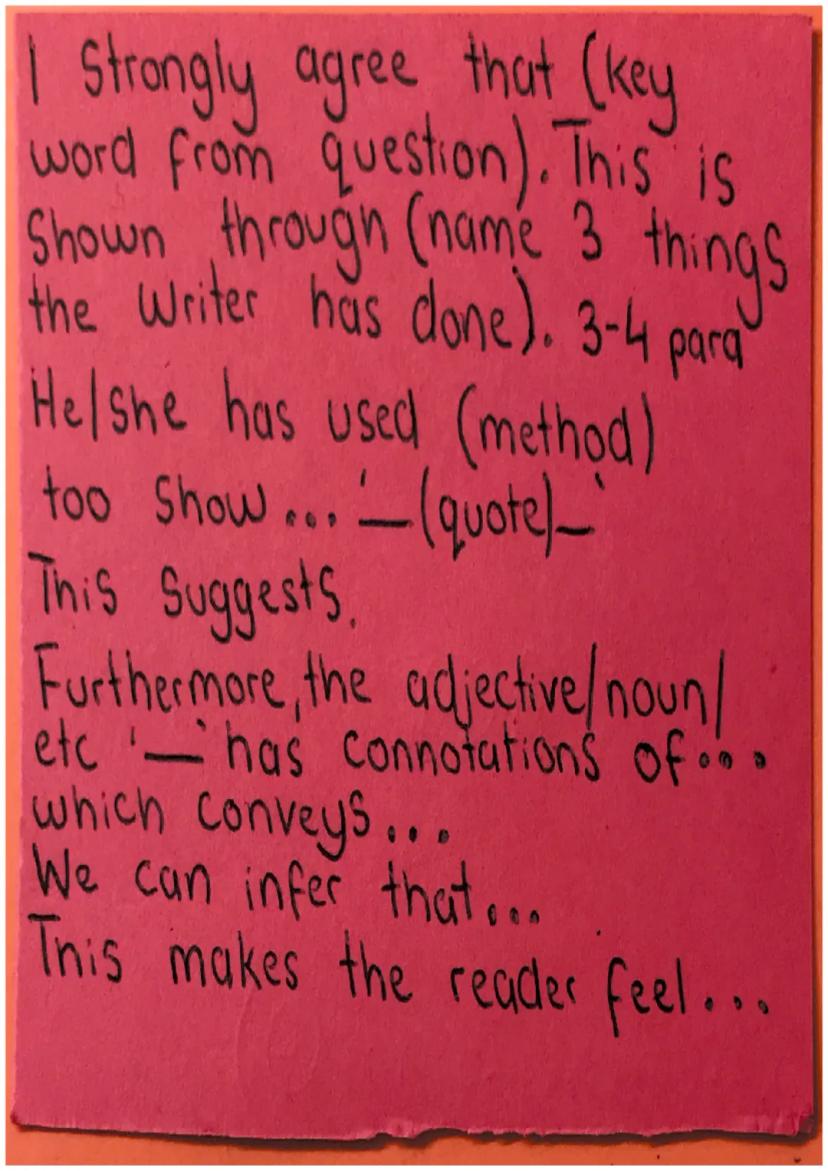 I Strongly agree that (key
word from question). This is
Shown through (name 3 things
the Writer has done). 3-4 para
He/she has used (method)
too Show... '_(quote)_'
This Suggests.
Furthermore, the adjective/noun/
etc '_' has connotations of...
which conveys...
We can infer that...
This makes the reader feel...